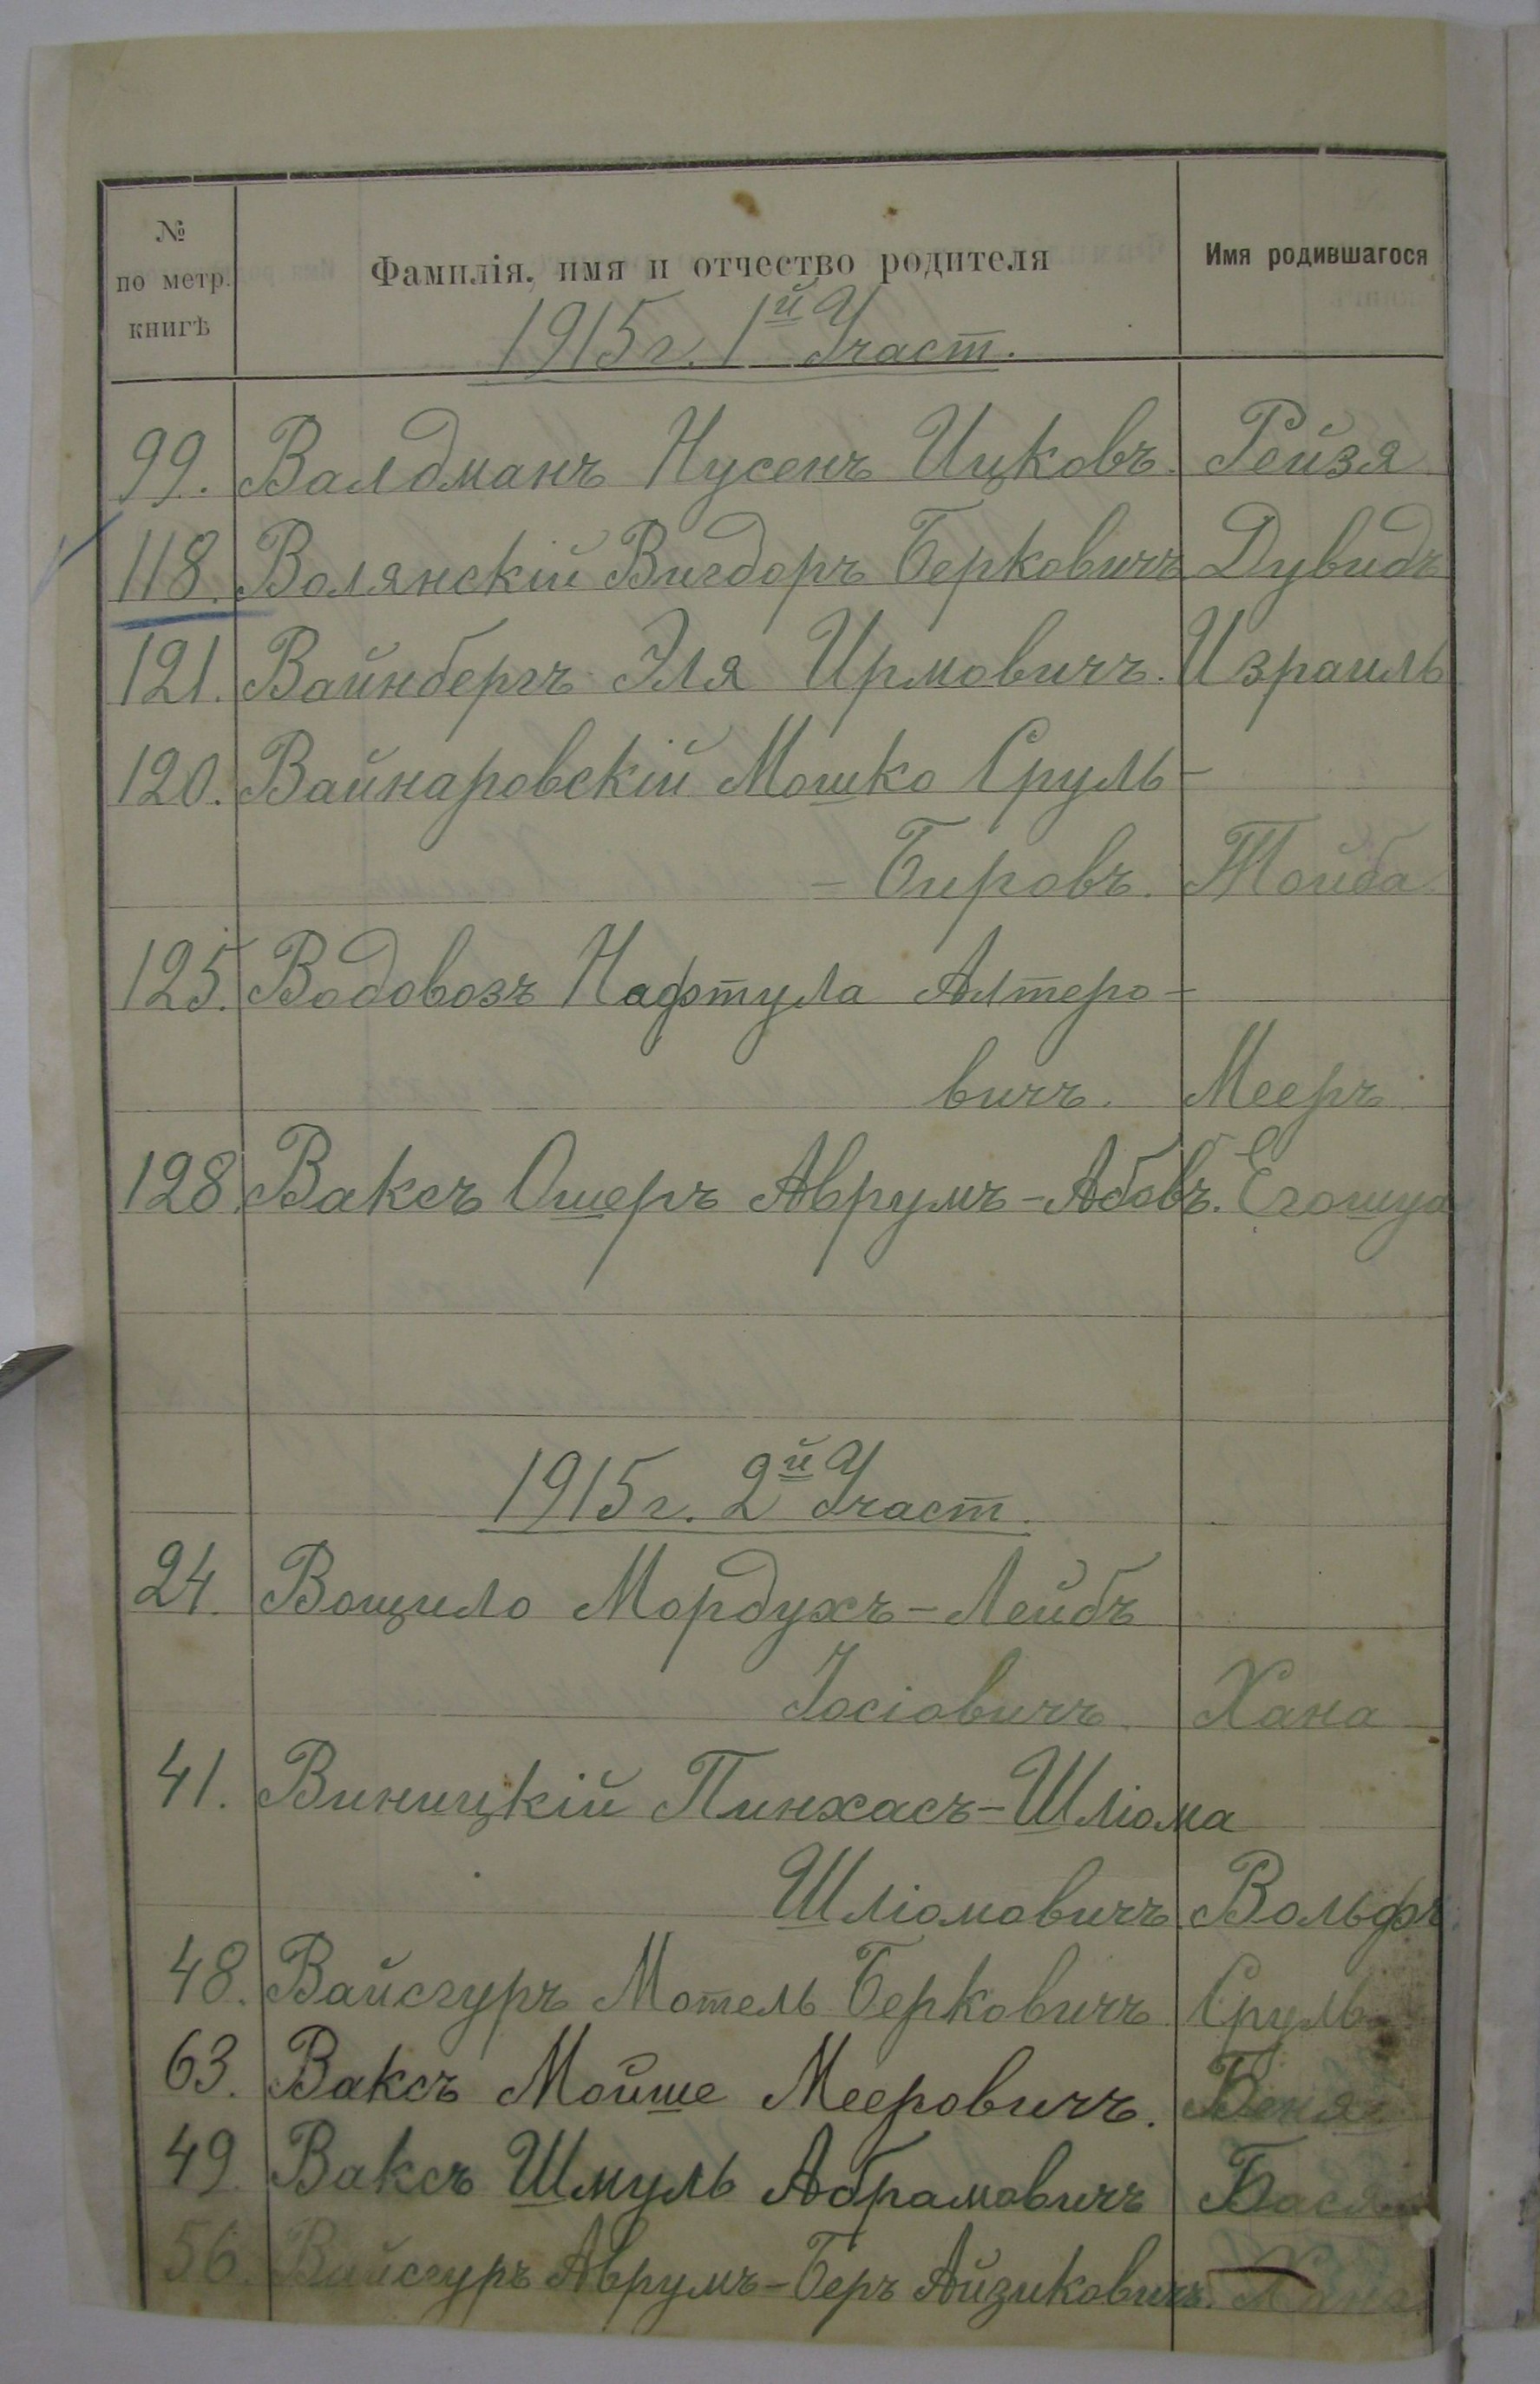 № по метр. книгѣ Фамилія, имя и отчество родителя Имя родившагося
1915г. 1й Участ.
99. Валдманъ Нусенъ Ицковъ. Рейзя
118. Волянскій Вигдоръ Берковичъ Дувидъ
121. Вайнбергъ Эля Ирмовичъ. Израиль
120. Вайнаровскій Мошко Сруль-
- Бировъ. Тойба
125. Водовозъ Нафтула Алтеро-
вичъ. Мееръ
128. Ваксъ Ошеръ Аврумъ-Абовъ. Егошуа
1915г. 2й Участ.
24. Вощило Мордухъ-Лейбъ
Іосіовичъ. Хана
41. Виницкій Пинхасъ-Шліома
Шліомовичъ. Вольфъ.
48. Вайсгуръ Мотель Берковичъ. Сруль
63. Ваксъ Мойше Мееровичъ.
49. Ваксъ Шмуль Абрамовичъ Бася
56. Вайсгуръ Аврумъ-Беръ Айзиковичъ.